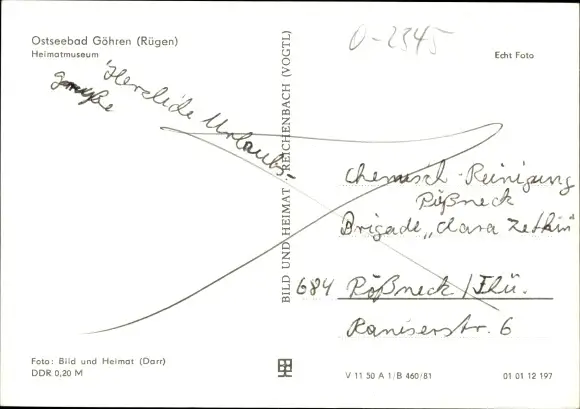 Ostseebad Göhren (Rügen)
Heimatmuseum
0-2345
Echt Foto
Herzliche Urlaubs-
grüße
BILD UND HEIMAT REICHENBACH (VOGTL)
Chemisch-Reinigung
Pößneck
Brigade „Clara Zetkin"
684 Pößneck /
Raniserstr. 6
Foto: Bild und Heimat (Darr)
DDR 0,20 M
V 11 50 A 1/B 460/81
01 01 12 197